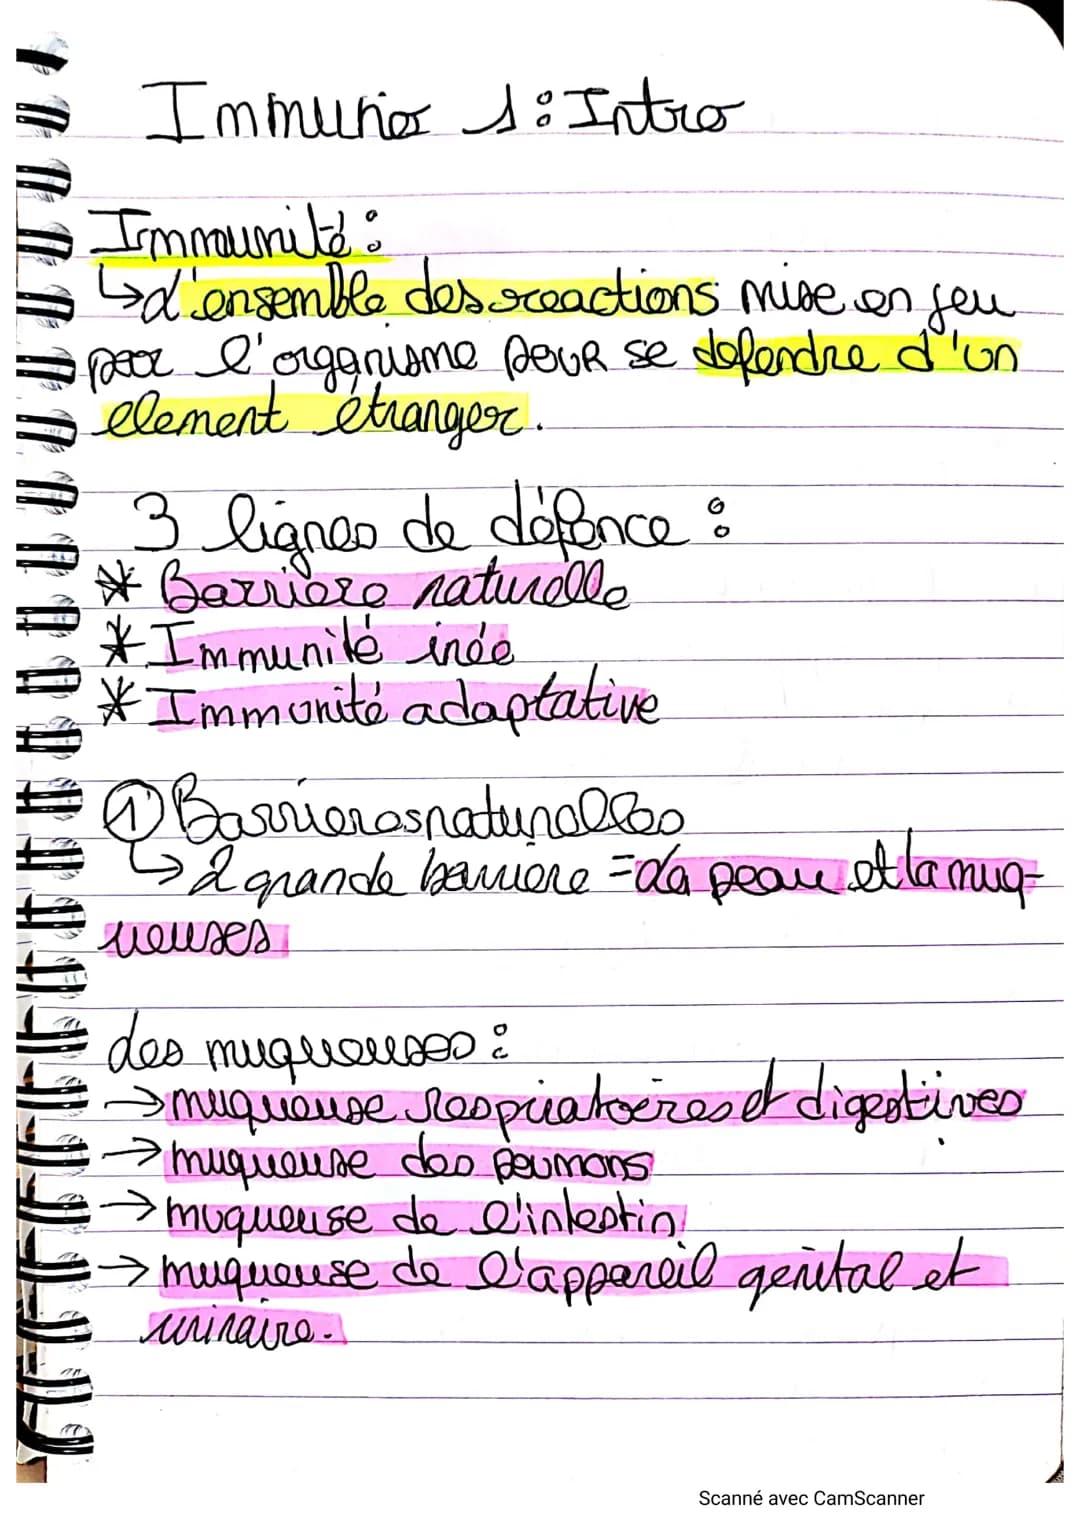 Immuno 1: Intro
Immunité :
↳ L'ensemble des reactions mise en jeu
par l'organisme pour se defendre d'un
element étranger.
3 lignes de défence :
* Barriere naturelle
* Immunité inée
* Immunité adaptative
① Barrieres naturelles
↳ 2 grande barriere = La peau et la muq-
ueuses
Les muqueuses :
→ muqueuse respiratoires et digestives
→ muqueuse des poumons
→ muqueuse de l'intestin
→ muqueuse de l'appareil genital et
urinaire.
Scanné avec CamScanner